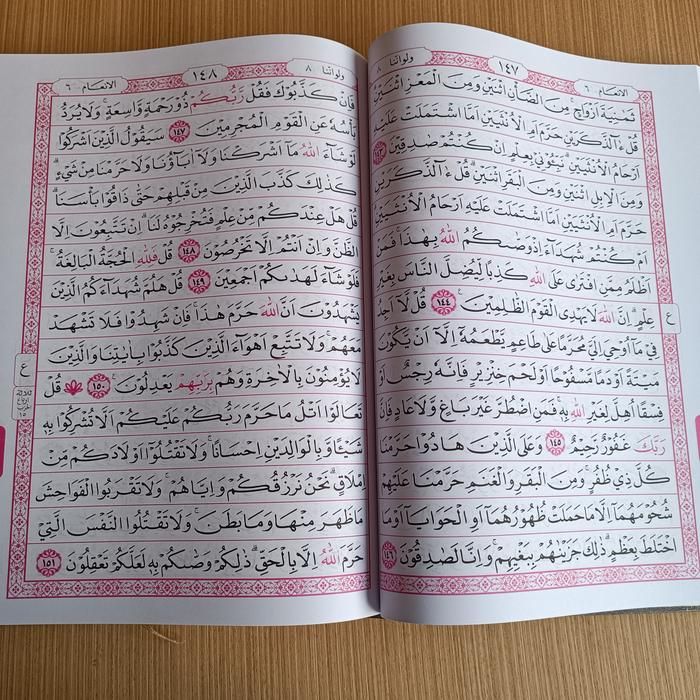 الانعام ٦
١٤٧
ولواننا ٨
ثَمٰنِيَةَ اَزْوَاجٍۚ مِنَ الضَّأْنِ اثْنَيْنِ وَمِنَ الْمَعْزِ اثْنَيْنِۜ
قُلْ ءٰٓالذَّكَرَيْنِ حَرَّمَ اَمِ الْاُنْثَيَيْنِ اَمَّا اشْتَمَلَتْ عَلَيْهِ
اَرْحَامُ الْاُنْثَيَيْنِۜ نَبِّؤُ۫نِي بِعِلْمٍ اِنْ كُنْتُمْ صٰدِقِينَۙ ﴿١٤٣﴾
وَمِنَ الْاِبِلِ اثْنَيْنِ وَمِنَ الْبَقَرِ اثْنَيْنِۜ قُلْ ءٰٓالذَّكَرَيْنِ
حَرَّمَ اَمِ الْاُنْثَيَيْنِ اَمَّا اشْتَمَلَتْ عَلَيْهِ اَرْحَامُ الْاُنْثَيَيْنِۜ
اَمْ كُنْتُمْ شُهَدَٓاءَ اِذْ وَصّٰيكُمُ اللّٰهُ بِهٰذَاۚ فَمَنْ
اَظْلَمُ مِمَّنِ افْتَرٰى عَلَى اللّٰهِ كَذِبًا لِيُضِلَّ النَّاسَ بِغَيْرِ
عِلْمٍۜ اِنَّ اللّٰهَ لَا يَهْدِي الْقَوْمَ الظّٰلِمِينَ۟ ﴿١٤٤﴾ قُلْ لَٓا اَجِدُ
فِي مَٓا اُو۫حِيَ اِلَيَّ مُحَرَّمًا عَلٰى طَاعِمٍ يَطْعَمُهُٓ اِلَّٓا اَنْ يَكُونَ
مَيْتَةً اَوْ دَمًا مَسْفُوحًا اَوْ لَحْمَ خِنْزِيرٍ فَاِنَّهُ رِجْسٌ اَوْ
فِسْقًا اُهِلَّ لِغَيْرِ اللّٰهِ بِهِۚ فَمَنِ اضْطُرَّ غَيْرَ بَاغٍ وَلَا عَادٍ فَاِنَّ
رَبَّكَ غَفُورٌ رَحِيمٌ ﴿١٤٥﴾ وَعَلَى الَّذِينَ هَادُوا حَرَّمْنَا
كُلَّ ذِي ظُفُرٍۚ وَمِنَ الْبَقَرِ وَالْغَنَمِ حَرَّمْنَا عَلَيْهِمْ
شُحُومَهُمَٓا اِلَّا مَا حَمَلَتْ ظُهُورُهُمَٓا اَوِ الْحَوَايَٓا اَوْ مَا
اخْتَلَطَ بِعَظْمٍۜ ذٰلِكَ جَزَيْنَاهُمْ بِبَغْيِهِمْۘ وَاِنَّا لَصَادِقُونَ ﴿١٤٦﴾
ع
الانعام ٦
١٤٨
ولواننا ٨
فَاِنْ كَذَّبُوكَ فَقُلْ رَبُّكُمْ ذُو رَحْمَةٍ وَاسِعَةٍۚ وَلَا يُرَدُّ
بَأْسُهُ عَنِ الْقَوْمِ الْمُجْرِمِينَ ﴿١٤٧﴾ سَيَقُولُ الَّذِينَ اَشْرَكُوا
لَوْ شَٓاءَ اللّٰهُ مَٓا اَشْرَكْنَا وَلَٓا اٰبَٓاؤُ۬نَا وَلَا حَرَّمْنَا مِنْ شَيْءٍۜ
كَذٰلِكَ كَذَّبَ الَّذِينَ مِنْ قَبْلِهِمْ حَتّٰى ذَاقُوا بَأْسَنَاۜ
قُلْ هَلْ عِنْدَكُمْ مِنْ عِلْمٍ فَتُخْرِجُوهُ لَنَاۜ اِنْ تَتَّبِعُونَ اِلَّا
الظَّنَّ وَاِنْ اَنْتُمْ اِلَّا تَخْرُصُونَ ﴿١٤٨﴾ قُلْ فَلِلّٰهِ الْحُجَّةُ الْبَالِغَةُۚ
فَلَوْ شَٓاءَ لَهَدٰيكُمْ اَجْمَعِينَ ﴿١٤٩﴾ قُلْ هَلُمَّ شُهَدَٓاءَكُمُ الَّذِينَ
يَشْهَدُونَ اَنَّ اللّٰهَ حَرَّمَ هٰذَاۚ فَاِنْ شَهِدُوا فَلَا تَشْهَدْ
مَعَهُمْۚ وَلَا تَتَّبِعْ اَهْوَٓاءَ الَّذِينَ كَذَّبُوا بِاٰيَاتِنَا وَالَّذِينَ
لَا يُؤْمِنُونَ بِالْاٰخِرَةِ وَهُمْ بِرَبِّهِمْ يَعْدِلُونَ۟ ﴿١٥٠﴾ قُلْ
تَعَالَوْا اَتْلُ مَا حَرَّمَ رَبُّكُمْ عَلَيْكُمْ اَلَّا تُشْرِكُوا بِهِ
شَيْـًٔا وَبِالْوَالِدَيْنِ اِحْسَانًاۚ وَلَا تَقْتُلُٓوا اَوْلَادَكُمْ مِنْ
اِمْلَاقٍۜ نَحْنُ نَرْزُقُكُمْ وَاِيَّاهُمْۚ وَلَا تَقْرَبُوا الْفَوَاحِشَ
مَا ظَهَرَ مِنْهَا وَمَا بَطَنَۚ وَلَا تَقْتُلُوا النَّفْسَ الَّتِي
حَرَّمَ اللّٰهُ اِلَّا بِالْحَقِّۜ ذٰلِكُمْ وَصّٰيكُمْ بِهِ لَعَلَّكُمْ تَعْقِلُونَ ﴿١٥١﴾
ع
ثلاثة
ارباع
الحزب
١٥